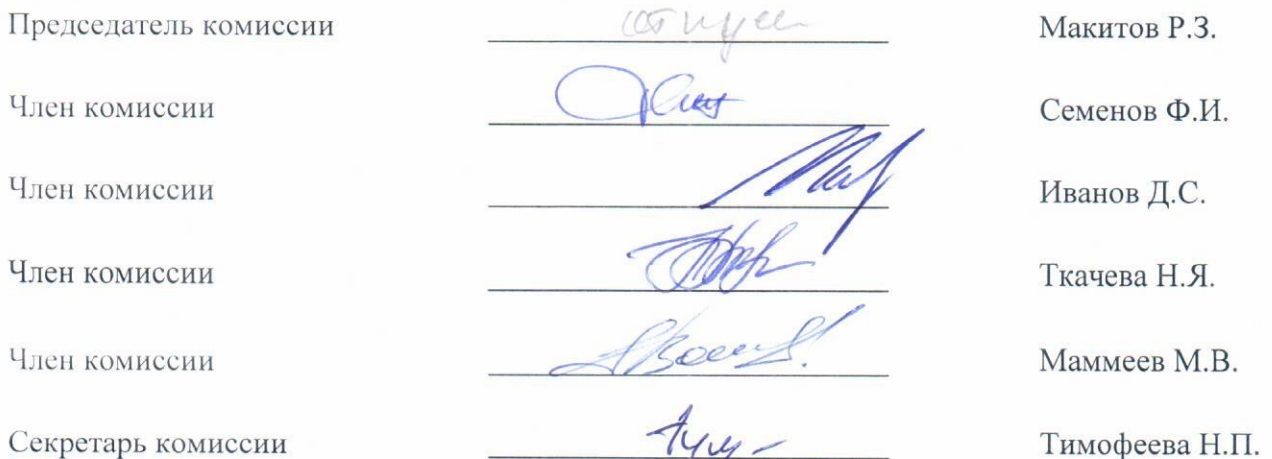 Председатель комиссии отпуск Макитов Р.З.
Член комиссии Семенов Ф.И.
Член комиссии Иванов Д.С.
Член комиссии Ткачева Н.Я.
Член комиссии Маммеев М.В.
Секретарь комиссии Тимофеева Н.П.